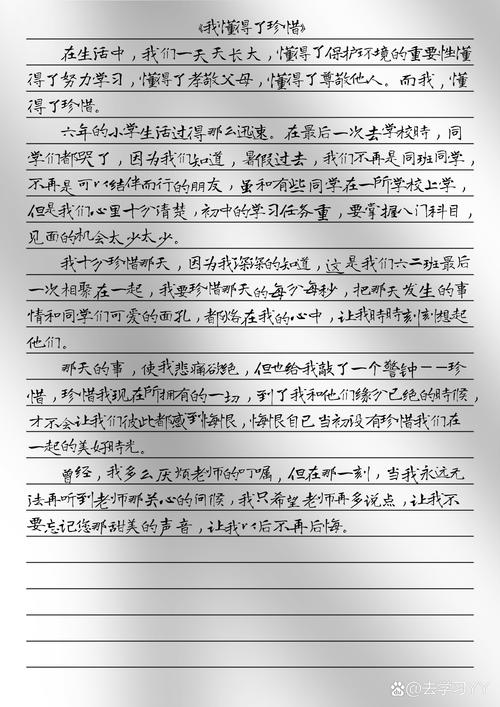 《我懂得了珍惜》
在生活中，我们一天天长大，懂得了保护环境的重要性懂
得了努力学习，懂得了孝敬父母，懂得了尊敬他人。而我，懂
得了珍惜。
六年的小学生活过得那么迅速。在最后一次去学校時，同
学们都哭了，因为我们知道，暑假过去，我们不再是同班同学，
不再是可以结伴而行的朋友，虽和有些同学在一所学校上学，
但是我们心里十分清楚，初中的学习任务重，要掌握八门科目，
见面的机会太少太少。
我十分珍惜那天，因为我深深的知道，这是我们六二班最后
一次相聚在一起，我要珍惜那天的每分每秒，把那天发生的事
情和同学们可爱的面孔，都烙在我的心中，让我時時刻刻想起
他们。
那天的事，使我悲痛欲绝，但也给我敲了一个警钟——珍
惜，珍惜我现在所拥有的一切，到了我和他们缘分已绝的時候，
才不会让我们彼此都感到悔恨，悔恨自己当初没有珍惜我们在
一起的美好時光。
曾经，我多么厌烦老师的叮嘱，但在那一刻，当我永远无
法再听到老师那关心的问候，我只希望老师再多说点，让我不
要忘记您那甜美的声音，让我以后不再后悔。
@去学习丫丫